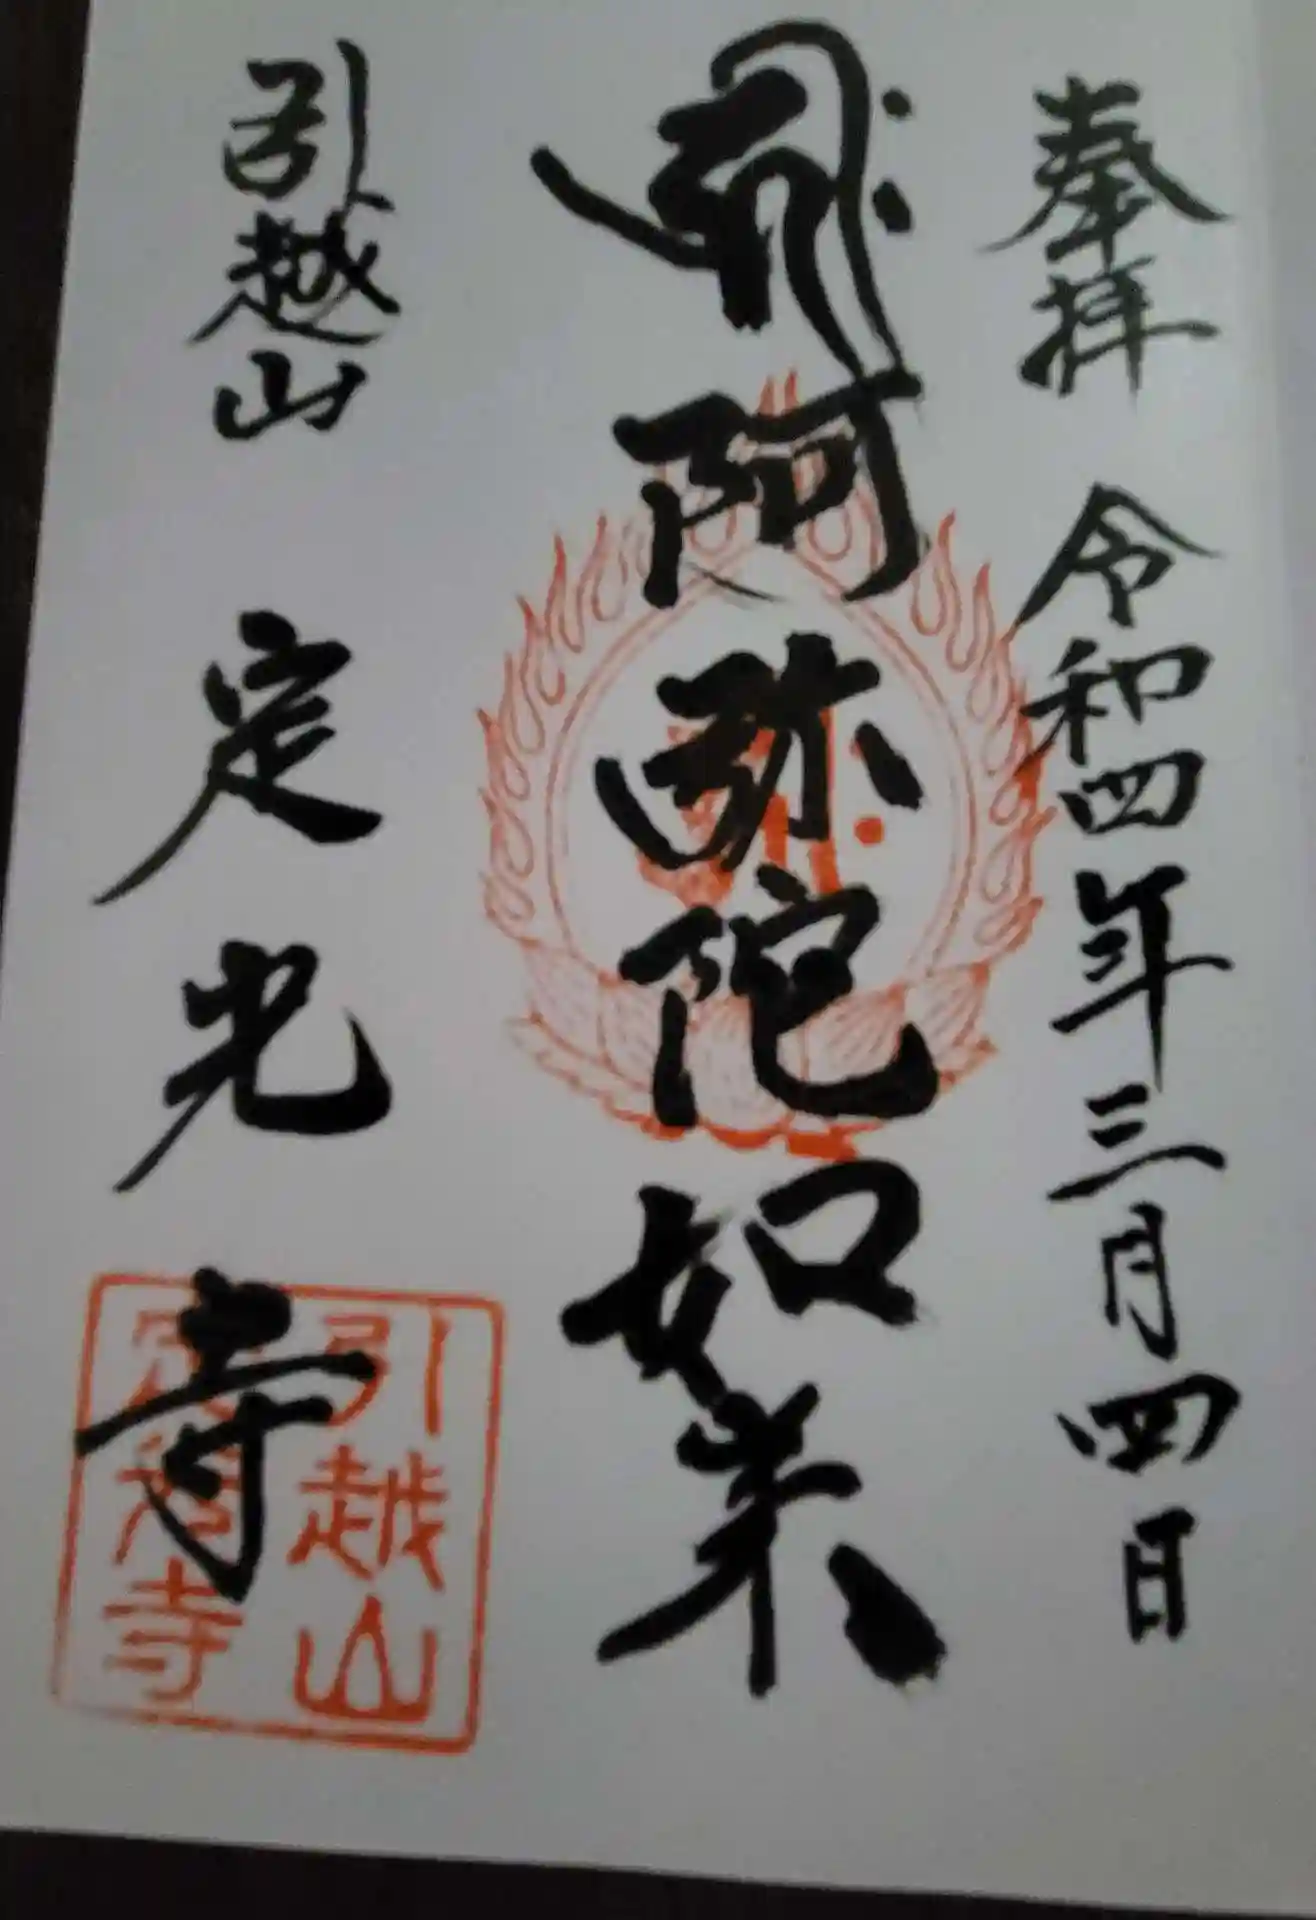 奉拝 令和四年三月四日
𑖮𑖿𑖨𑖱𑖾 阿弥陀如来
引越山 定光寺
引越山
定光寺